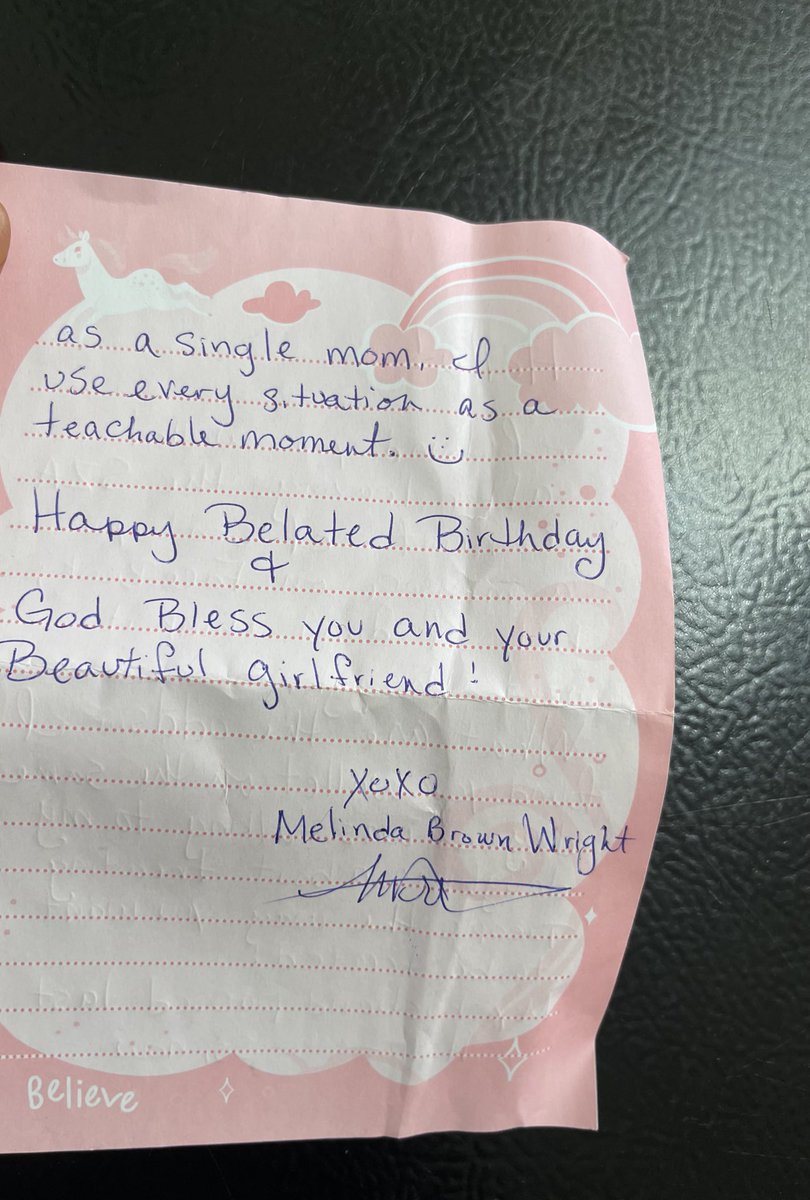 as a single mom, I
use every situation as a
teachable moment. :)
Happy Belated Birthday
&
God Bless you and your
Beautiful girlfriend!
XOXO
Melinda Brown Wright
Believe